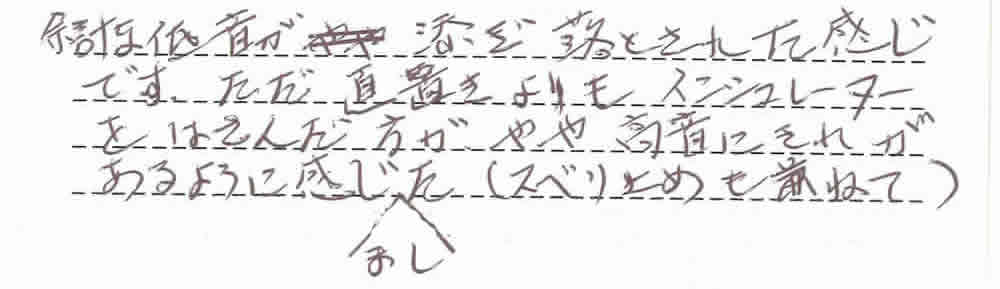 余計な低音がそぎ落とされた感じ
です。ただ直置きよりもインシュレーター
をはさんだ方がやや高音にきれが
あるように感じた(スベリ止めも兼ねて)
まし